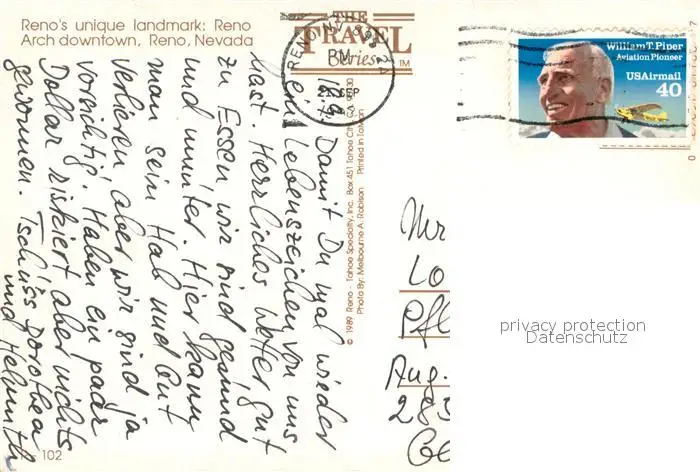 Reno's unique landmark: Reno
Arch downtown, Reno, Nevada
THE
TRAVEL
Series TM
RENO, NV
PM
SEP
William T. Piper
Aviation Pioneer
USAirmail
40
Damit Du mal wieder
ein Lebenszeichen von uns
hast. Herrliches Wetter gut
zu Essen wir sind gesund
und munter. Hier kann
man sein Hab und Gut
verlieren aber wir sind ja
vorsichtig. Haben ein paar
Dollar riskiert aber nichts
gewonnen. Tschüss Dorothea
und Helmuth
© 1989 Reno - Tahoe Specialty, Inc. Box 451 Tahoe City, CA 95730
Photo By: Melbourne A. Robison Printed in Taiwan
Mr
Lo
Pfl
Aug.
283
privacy protection
Datenschutz
102